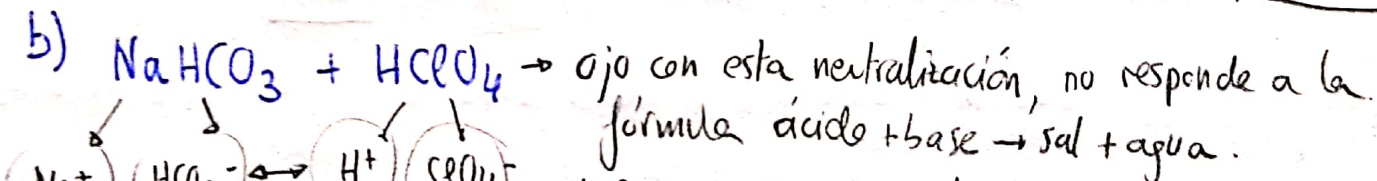 b) NaHCO₃ + HClO₄ → ojo con esta neutralización, no responde a la
fórmula ácido + base → sal + agua.
H⁺ ClO₄⁻